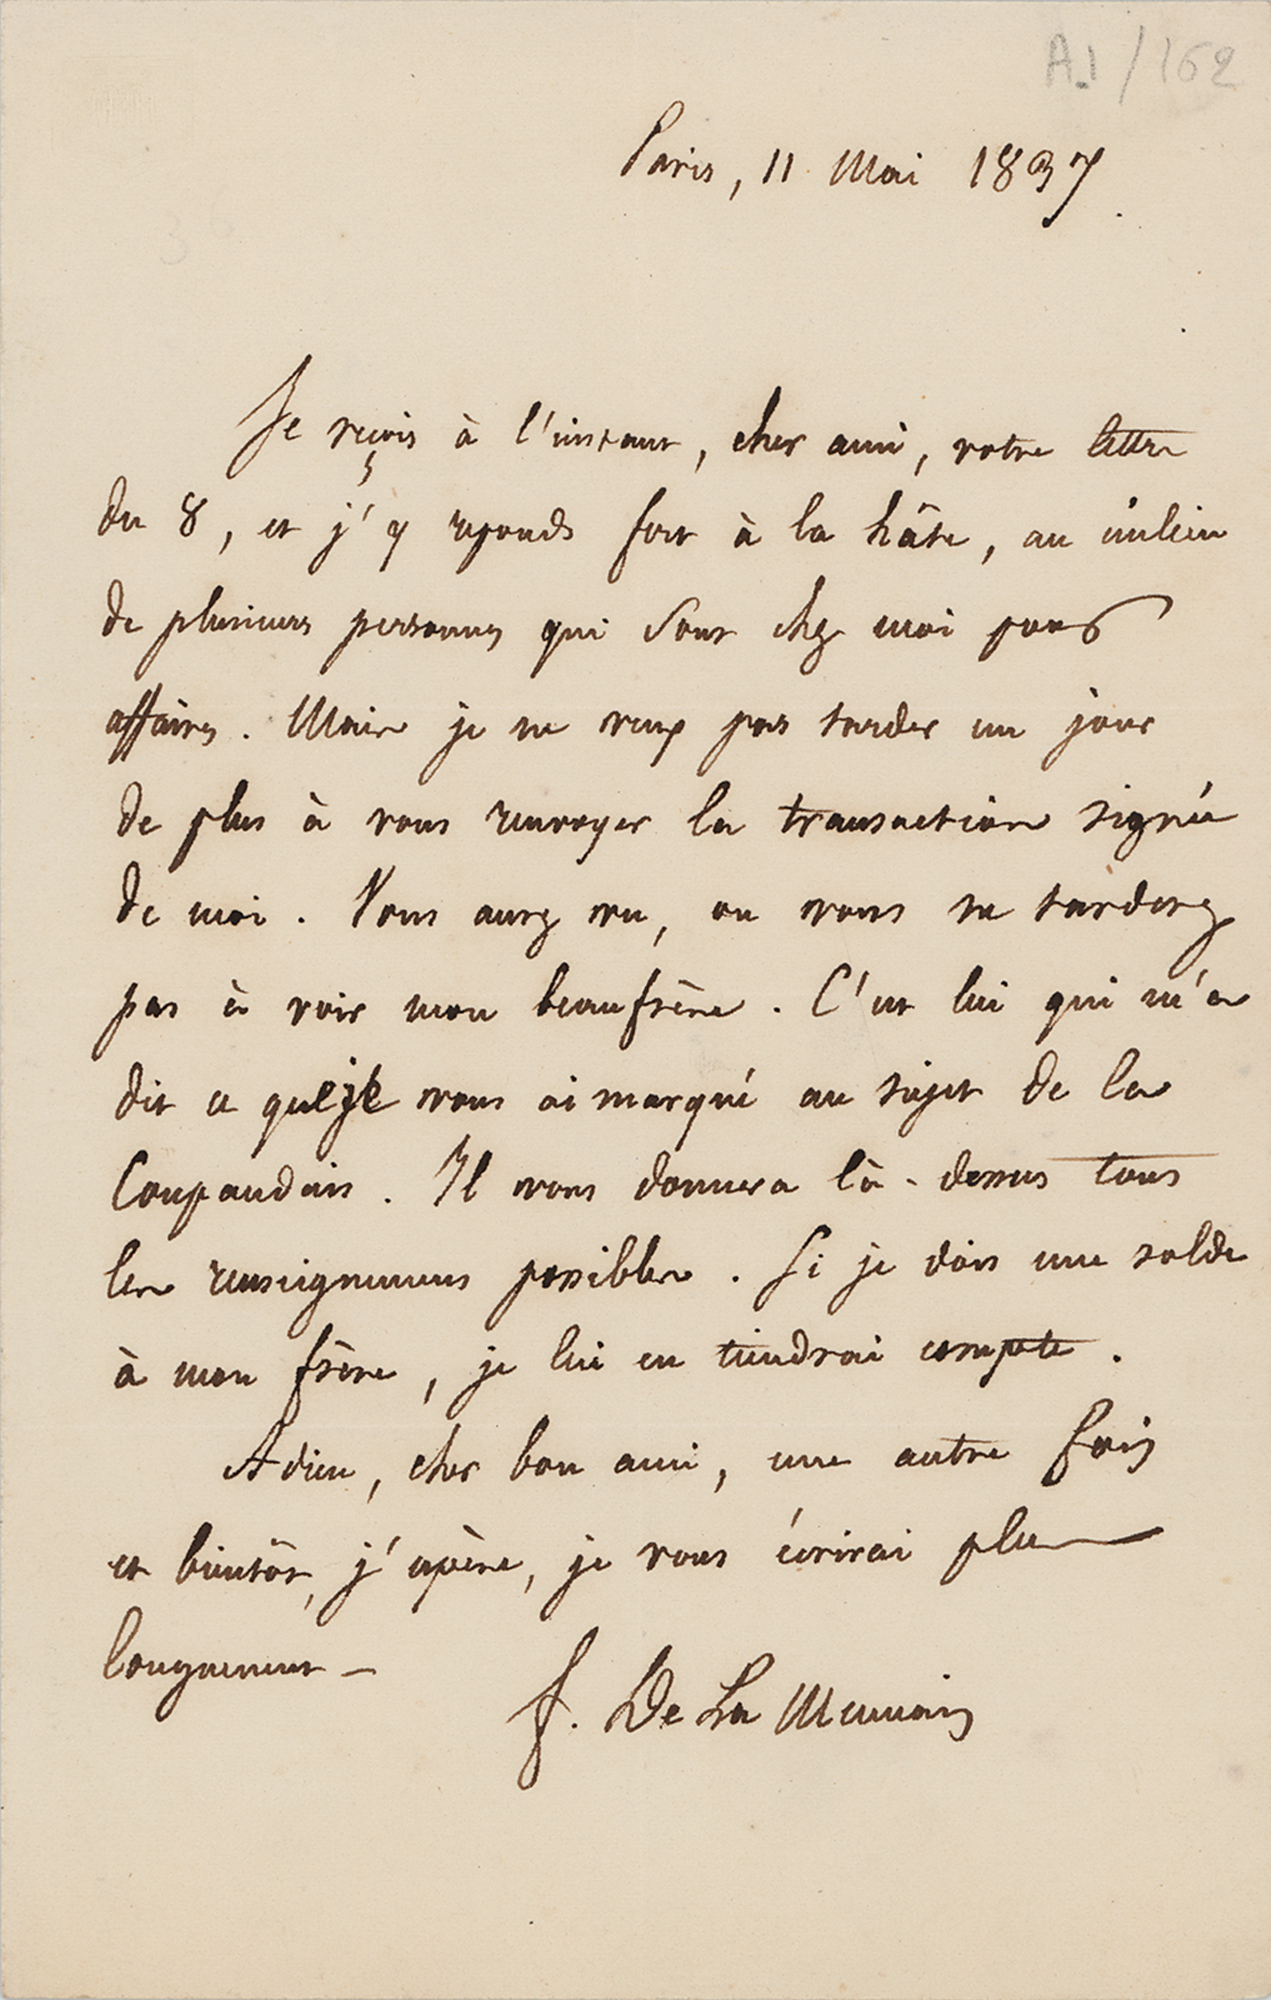 A.1/162
Paris, 11 Mai 1837.
Je reçois à l'instant, cher ami, votre lettre
du 8, et j'y reponds fort à la hâte, au milieu
de plusieurs personnes qui sont chez moi pour
affaires. Mais je ne veux pas tarder un jour
de plus à vous renvoyer la transaction signée
de moi. Vous aurez vu, ou vous ne tarderez
pas à voir mon beaufrère. C'est lui qui m'a
dit ce que je vous ai marqué au sujet de la
Coupaudais. Il vous donnera là-dessus tous
les renseignemens possibles. Si je dois une solde
à mon frère, je lui en tiendrai compte.
Adieu, cher bon ami, une autre fois
et bientôt, j'espère, je vous écrirai plus
longuement —
F. De La Mennais